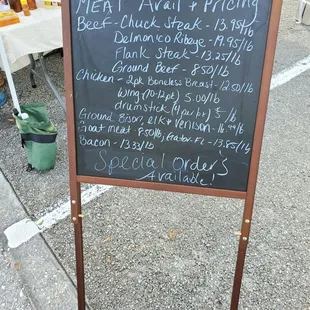 MEAT Avail + Pricing
Beef - Chuck Steak - 13.95/lb
Delmonico Ribeye - 19.95/lb
Flank Steak - 13.25/lb
Ground Beef - 8.50/lb
Chicken - 2pk Boneless Breast - 12.50/lb
Wing (10-12pk) 5.00/lb
drumstick (4 per pk) 5/lb
Ground Bison, elk & venison - 16.99/lb
Goat meat - 8.50/lb, Gator-FL - 13.85/lb
Bacon - 13.33/lb
Special Order's
Available!